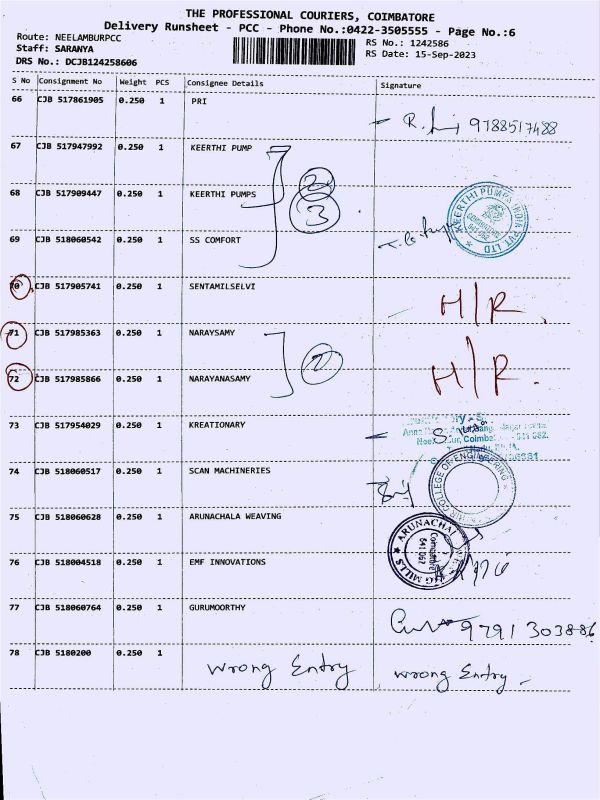 THE PROFESSIONAL COURIERS, COIMBATORE
Delivery Runsheet - PCC - Phone No.:0422-3505555 - Page No.:6
Route: NEELAMBURPCC
RS No.: 1242586
Staff: SARANYA
RS Date: 15-Sep-2023
DRS No.: DCJB124258606
S No Consignment No Weight PCS Consignee Details Signature
66 CJB 517861905 0.250 1 PRI
9788517488
67 CJB 517947992 0.250 1 KEERTHI PUMP
2
68 CJB 517909447 0.250 1 KEERTHI PUMPS
3
KEERTHI PUMPS INDIA PVT. LTD
COIMBATORE
641 062
69 CJB 518060542 0.250 1 SS COMFORT
70 CJB 517905741 0.250 1 SENTAMILSELVI H/R.
71 CJB 517985363 0.250 1 NARAYSAMY
72 CJB 517985866 0.250 1 NARAYANASAMY H/R.
73 CJB 517954029 0.250 1 KREATIONARY
74 CJB 518060517 0.250 1 SCAN MACHINERIES
COLLEGE OF ENGINEERING
75 CJB 518060628 0.250 1 ARUNACHALA WEAVING
ARUNACHAL
MILLS
Coimbatore
641 062
76 CJB 518004518 0.250 1 EMF INNOVATIONS
77 CJB 518060764 0.250 1 GURUMOORTHY
9791303886
78 CJB 5180200 0.250 1 Wrong Entry wrong Entry